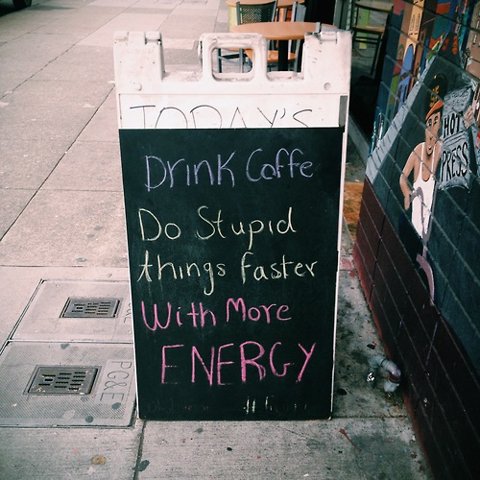 TODAY'S
Drink Coffe
Do Stupid
things faster
With More
ENERGY
HOT
PRESS
PG&E